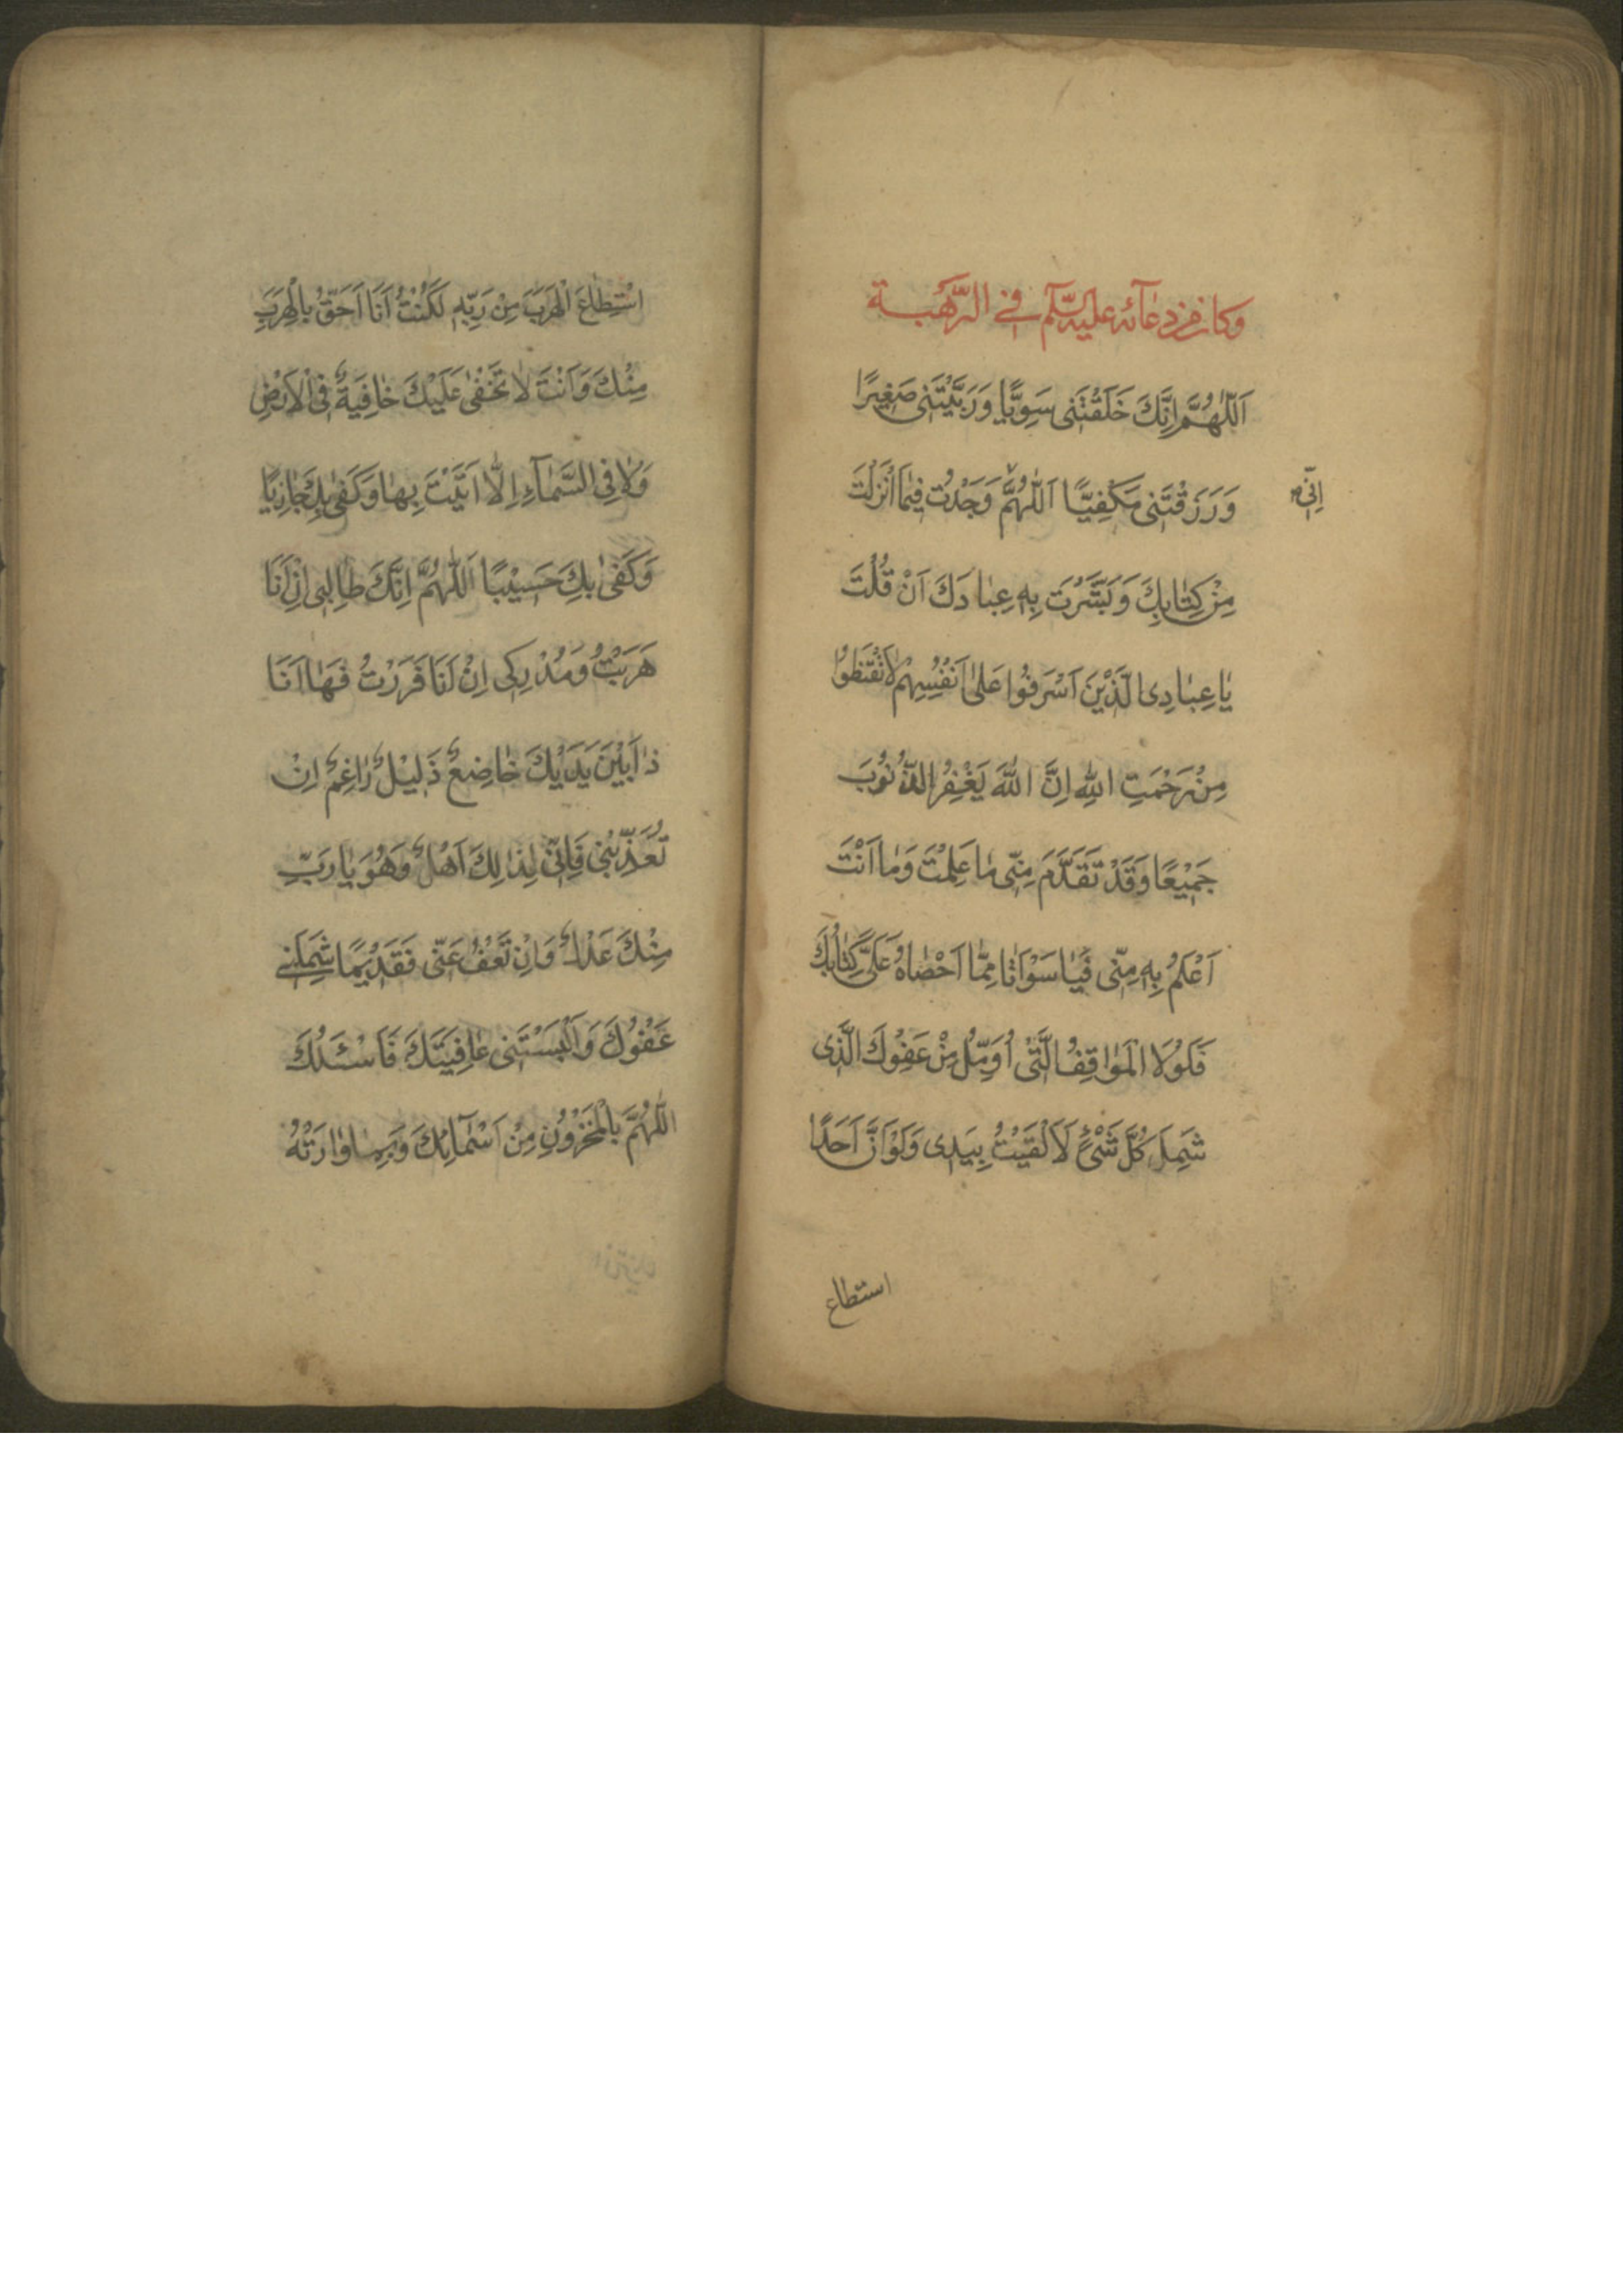 وكان من دعائه عليه السلم في الرهبة
اَللّٰهُمَّ اِنَّكَ خَلَقْتَنى سَوِيًّا وَرَبَّيْتَنى صَغِيرًا
وَرَزَقْتَنى مَكْفِيًّا اَللّٰهُمَّ وَجَدْتُ فِيمَا اَنْزَلْتَ
اِنّى
مِنْ كِتٰابِكَ وَبَشَّرْتَ بِهِ عِبٰادَكَ اَنْ قُلْتَ
يٰا عِبٰادِى الَّذْينَ اَسْرَفُوا عَلىٰ اَنْفُسِهِمْ لاٰتَقْنَطُوا
مِنْ رَحْمَتِ اللهِ اِنَّ اللهَ يَغْفِرُ الذُّنُوبَ
جَمْيعًا وَقَدْ تَقَدَّمَ مِنّى مٰا عَلِمْتَ وَمٰا اَنْتَ
اَعْلَمُ بِهِ مِنّى فَيٰا سَوْاَتٰا مِمّٰا اَحْصٰاهُ عَلَىَّ كِتٰابُكَ
فَلَوْلَا الْمَوٰاقِفُ الَّتْى اُوَمِّلُ مِنْ عَفِوْكَ الَّذى
شَمِلَ كُلَّ شَىْءٍ لَاَلْقَيْتُ بِيَدى وَلَوْ اَنَّ اَحَدًا
استطاع
اسْتِطٰاعَ الْهَرَبَ مِنْ رَبِّهِ لَكُنْتُ اَنَا اَحَقُّ بِالْهِرَبِ
مِنْكَ وَاَنْتَ لاٰ تَخْفٰى عَلَيْكَ خٰافِيَةٌ فِى الْاَرْضِ
وَلاٰ فِى السَّمٰآءِ اِلّٰا اَتَيْتَ بِهٰا وَكَفٰى بِكَ جٰازِيًا
وَكَفٰى بِكَ حَسيْبًا اَللّٰهُمَّ اِنَّكَ طٰالِبى اِنْ اَنَا
هَرَبْتُ وَمُدْرِكى اِنْ اَنَا فَرَرْتُ فَهٰا اَنَا
ذٰا بَيْنَ يَدَيْكَ خٰاضِعٌ ذَليْلٌ رٰاغِمٌ اِنْ
تُعَذِّبْنى فَاِنّى لِذٰلِكَ اَهْلٌ وَهُوَ يٰا رَبِّ
مِنْكَ عَدْلٌ وَاِنْ تَعْفُ عَنّى فَقَدْيمًا شَمِلَنى
عَفْوُكَ وَاَلْبَسْتَنى عٰافِيَتَكَ فَاَسْئَلُكَ
اللّٰهُمَّ بِالْمَخْزُونِ مِنْ اَسْمٰآئِكَ وَبِمٰا وٰارَتْهُ